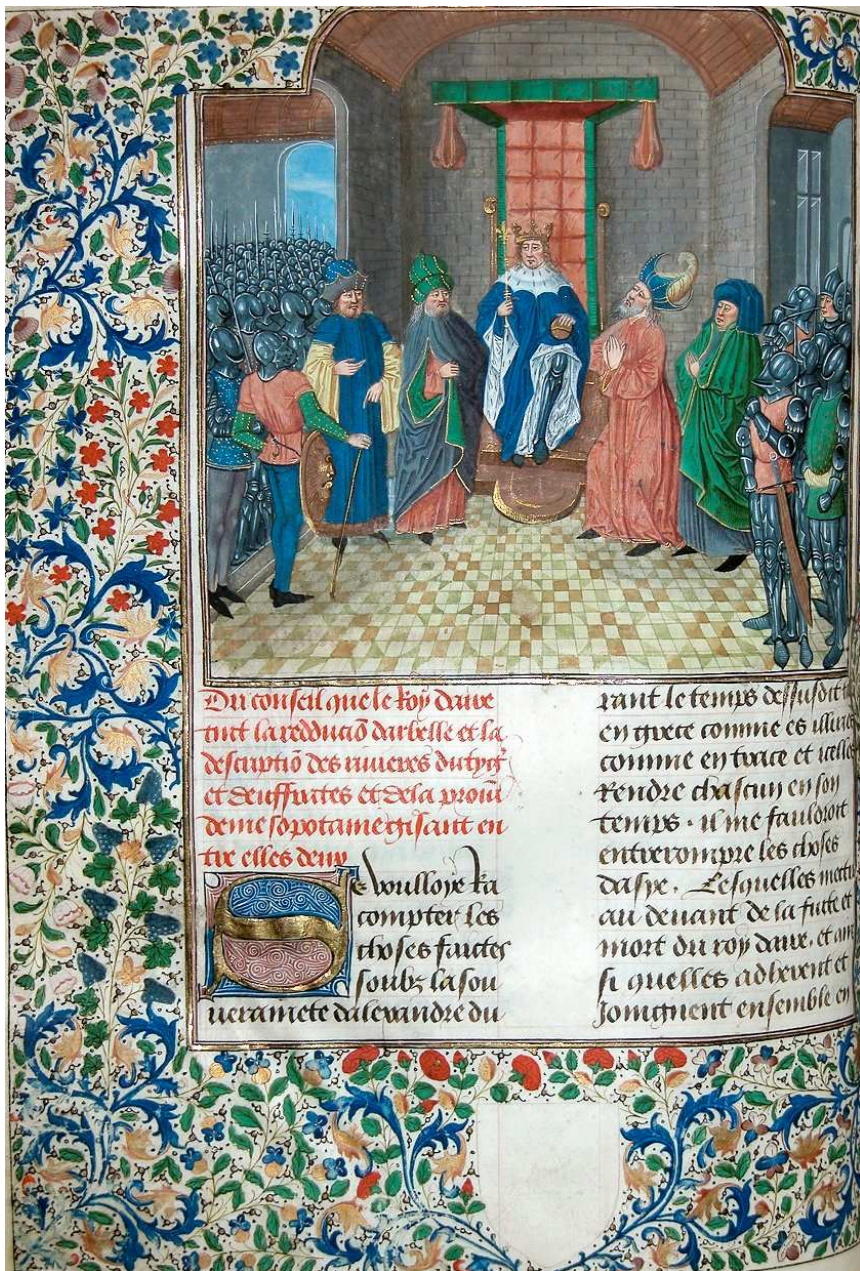 Du conseil que le Roy daire
tint la redduciõ darbelle et la
descriptiõ des riuieres du tygr̃
et deuffrates et de la prouĩ
de mesopotame gisant en
tre elles deux
Se voulloye ra
compter les
choses faictes
soubz la sou
uerainete dalexandre du
rant le temps dessusdit
en grece comme es
comme en trace et icelles
Rendre chascun en son
temps. il me fauldroit
entrerompre les choses
dasye. Lesquelles
au deuant de la fuite et
mort du roy daire. et ain
si quelles adherent et
Joingnent ensemble en